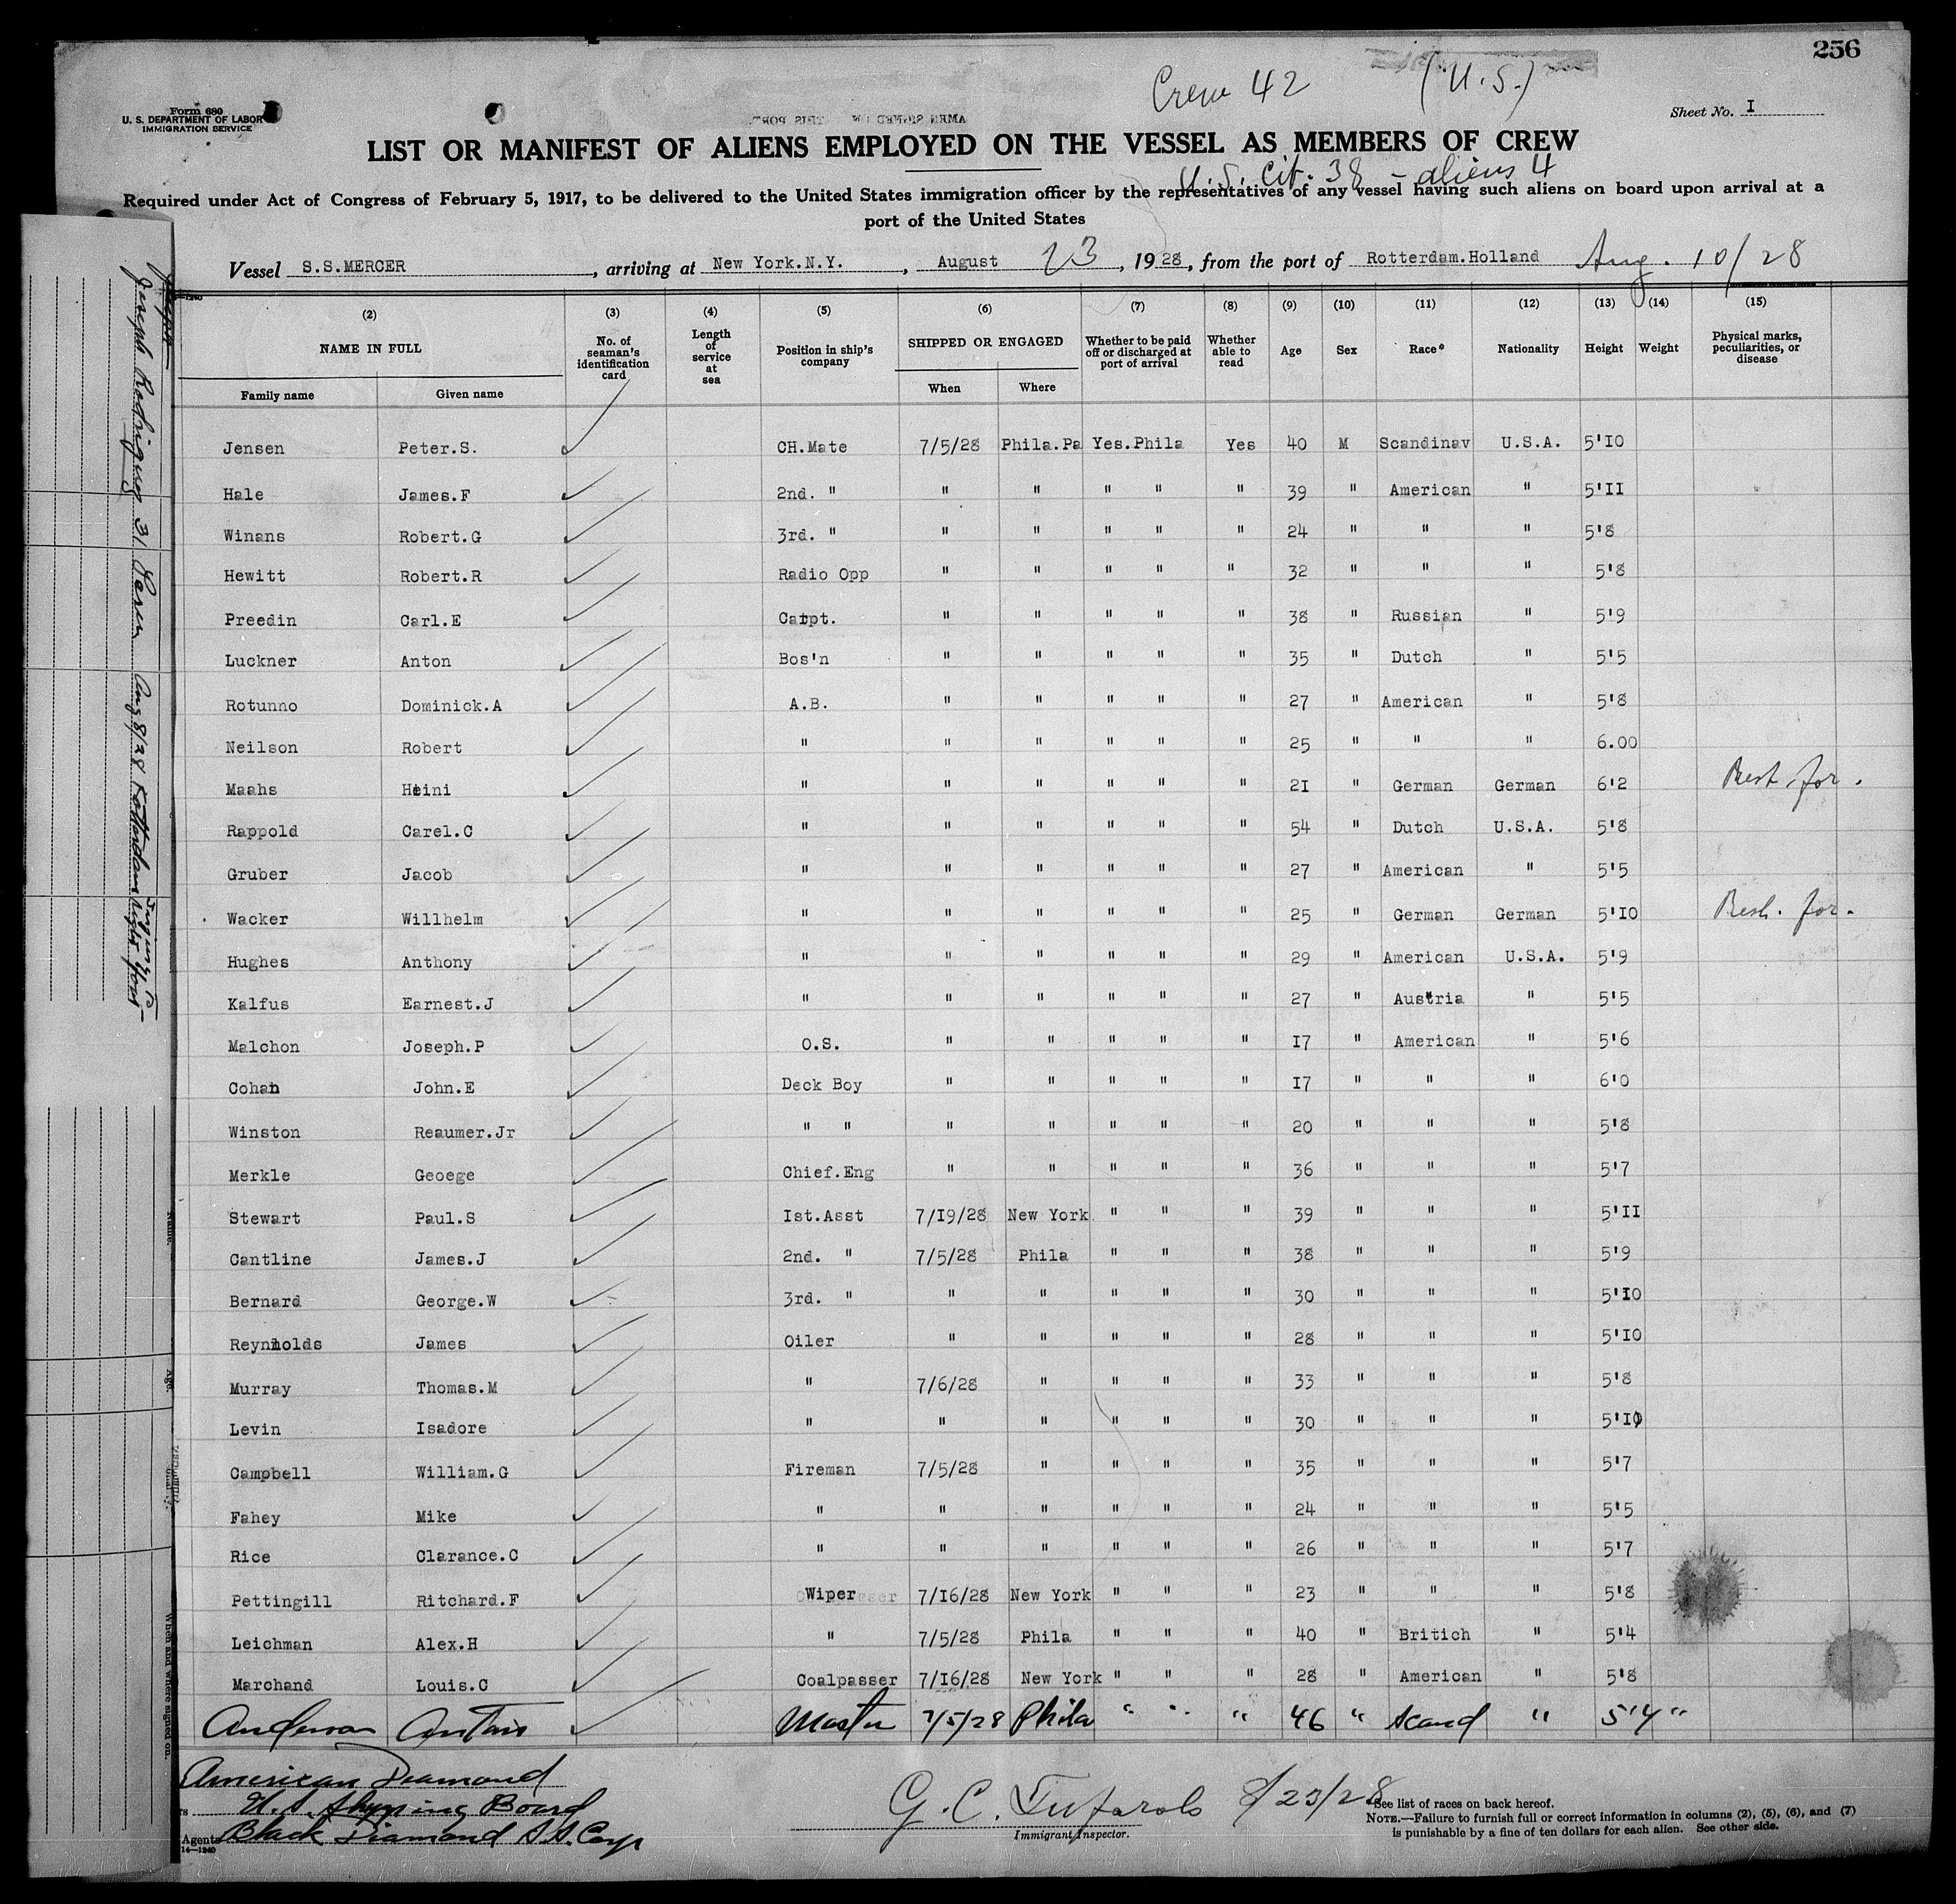 256
Crew 42 (U.S.)
Form 680
U. S. DEPARTMENT OF LABOR
IMMIGRATION SERVICE
Sheet No. I
LIST OR MANIFEST OF ALIENS EMPLOYED ON THE VESSEL AS MEMBERS OF CREW
U.S. Cit. 38 - aliens 4
Required under Act of Congress of February 5, 1917, to be delivered to the United States immigration officer by the representatives of any vessel having such aliens on board upon arrival at a
port of the United States
Vessel S.S.MERCER, arriving at New York.N.Y., August 23, 1928, from the port of Rotterdam.Holland Aug. 10/28
(2) (3) (4) (5) (6) (7) (8) (9) (10) (11) (12) (13) (14) (15)
NAME IN FULL No. of seaman's identification card Length of service at sea Position in ship's company SHIPPED OR ENGAGED Whether to be paid off or discharged at port of arrival Whether able to read Age Sex Race* Nationality Height Weight Physical marks, peculiarities, or disease
Family name Given name When Where
Jensen Peter.S. CH.Mate 7/5/28 Phila.Pa Yes.Phila Yes 40 M Scandinav U.S.A. 5'10
Hale James.F 2nd. " " " " " " 39 " American " 5'11
Winans Robert.G 3rd. " " " " " " 24 " " " 5'8
Hewitt Robert.R Radio Opp " " " " " 32 " " " 5'8
Preedin Carl.E Carpt. " " " " " 38 " Russian " 5'9
Luckner Anton Bos'n " " " " " 35 " Dutch " 5'5
Rotunno Dominick.A A.B. " " " " " 27 " American " 5'8
Neilson Robert " " " " " " 25 " " " 6.00
Maahs Heini " " " " " " 21 " German German 6'2 Best. for.
Rappold Carel.C " " " " " " 54 " Dutch U.S.A. 5'8
Gruber Jacob " " " " " " 27 " American " 5'5
Wacker Willhelm " " " " " " 25 " German German 5'10 Best. for.
Hughes Anthony " " " " " " 29 " American U.S.A. 5'9
Kalfus Earnest.J " " " " " " 27 " Austria " 5'5
Malchon Joseph.P O.S. " " " " " 17 " American " 5'6
Cohan John.E Deck Boy " " " " " 17 " " " 6'0
Winston Reaumer.Jr " " " " " " " 20 " " " 5'8
Merkle Geoege Chief.Eng " " " " " 36 " " " 5'7
Stewart Paul.S Ist.Asst 7/19/28 New York " " " 39 " " " 5'11
Cantline James.J 2nd. " 7/5/28 Phila " " " 38 " " " 5'9
Bernard George.W 3rd. " " " " " " 30 " " " 5'10
Reynolds James Oiler " " " " " 28 " " " 5'10
Murray Thomas.M " 7/6/28 " " " " 33 " " " 5'8
Levin Isadore " " " " " " 30 " " " 5'10
Campbell William.G Fireman 7/5/28 " " " " 35 " " " 5'7
Fahey Mike " " " " " " 24 " " " 5'5
Rice Clarance.C " " " " " " 26 " " " 5'7
Pettingill Ritchard.F Wiper 7/16/28 New York " " " 23 " " " 5'8
Leichman Alex.H " 7/5/28 Phila " " " 40 " Britich " 5'4
Marchand Louis.C Coalpasser 7/16/28 New York " " " 28 " American " 5'8
Anderson Master 7/5/28 Phila " " " 46 " Scand " 5'4"
American Diamond
U.S. Shipping Board
Agents Black Diamond S.S. Corp
14—1240
G. C. Tufarolo 8/23/28
Immigrant Inspector.
*See list of races on back hereof.
NOTE.—Failure to furnish full or correct information in columns (2), (5), (6), and (7)
is punishable by a fine of ten dollars for each alien. See other side.
Joseph Rodriguez 31 Aug 8/28 Rotterdam